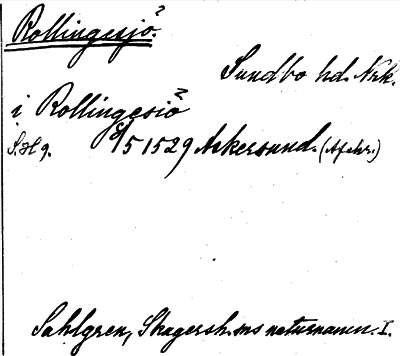 Rollingesjö?
Sundbo hd. Nrk.
i Rollingesiö?
S. H 9. 8/5 1529 Askersund. (Afskr.)
Sahlgren, Skagersh:ns naturnamn. I.